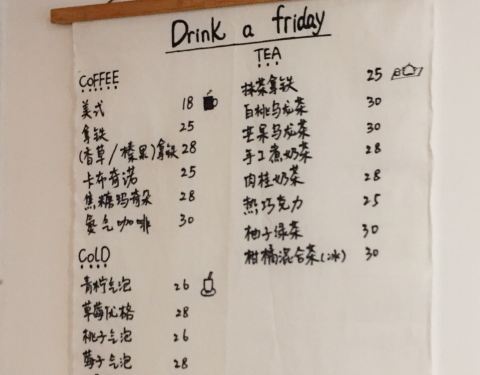 Drink a friday
COFFEE
美式 18
拿铁 25
(香草/榛果)拿铁 28
卡布奇诺 25
焦糖玛奇朵 28
氮气咖啡 30
COLD
青柠气泡 26
草莓优格 28
桃子气泡 26
莓子气泡 28
TEA
抹茶拿铁 25
白桃乌龙茶 30
芒果乌龙茶 30
手工煮奶茶 28
肉桂奶茶 28
热巧克力 25
柚子绿茶 30
柑橘混合茶(冰) 30